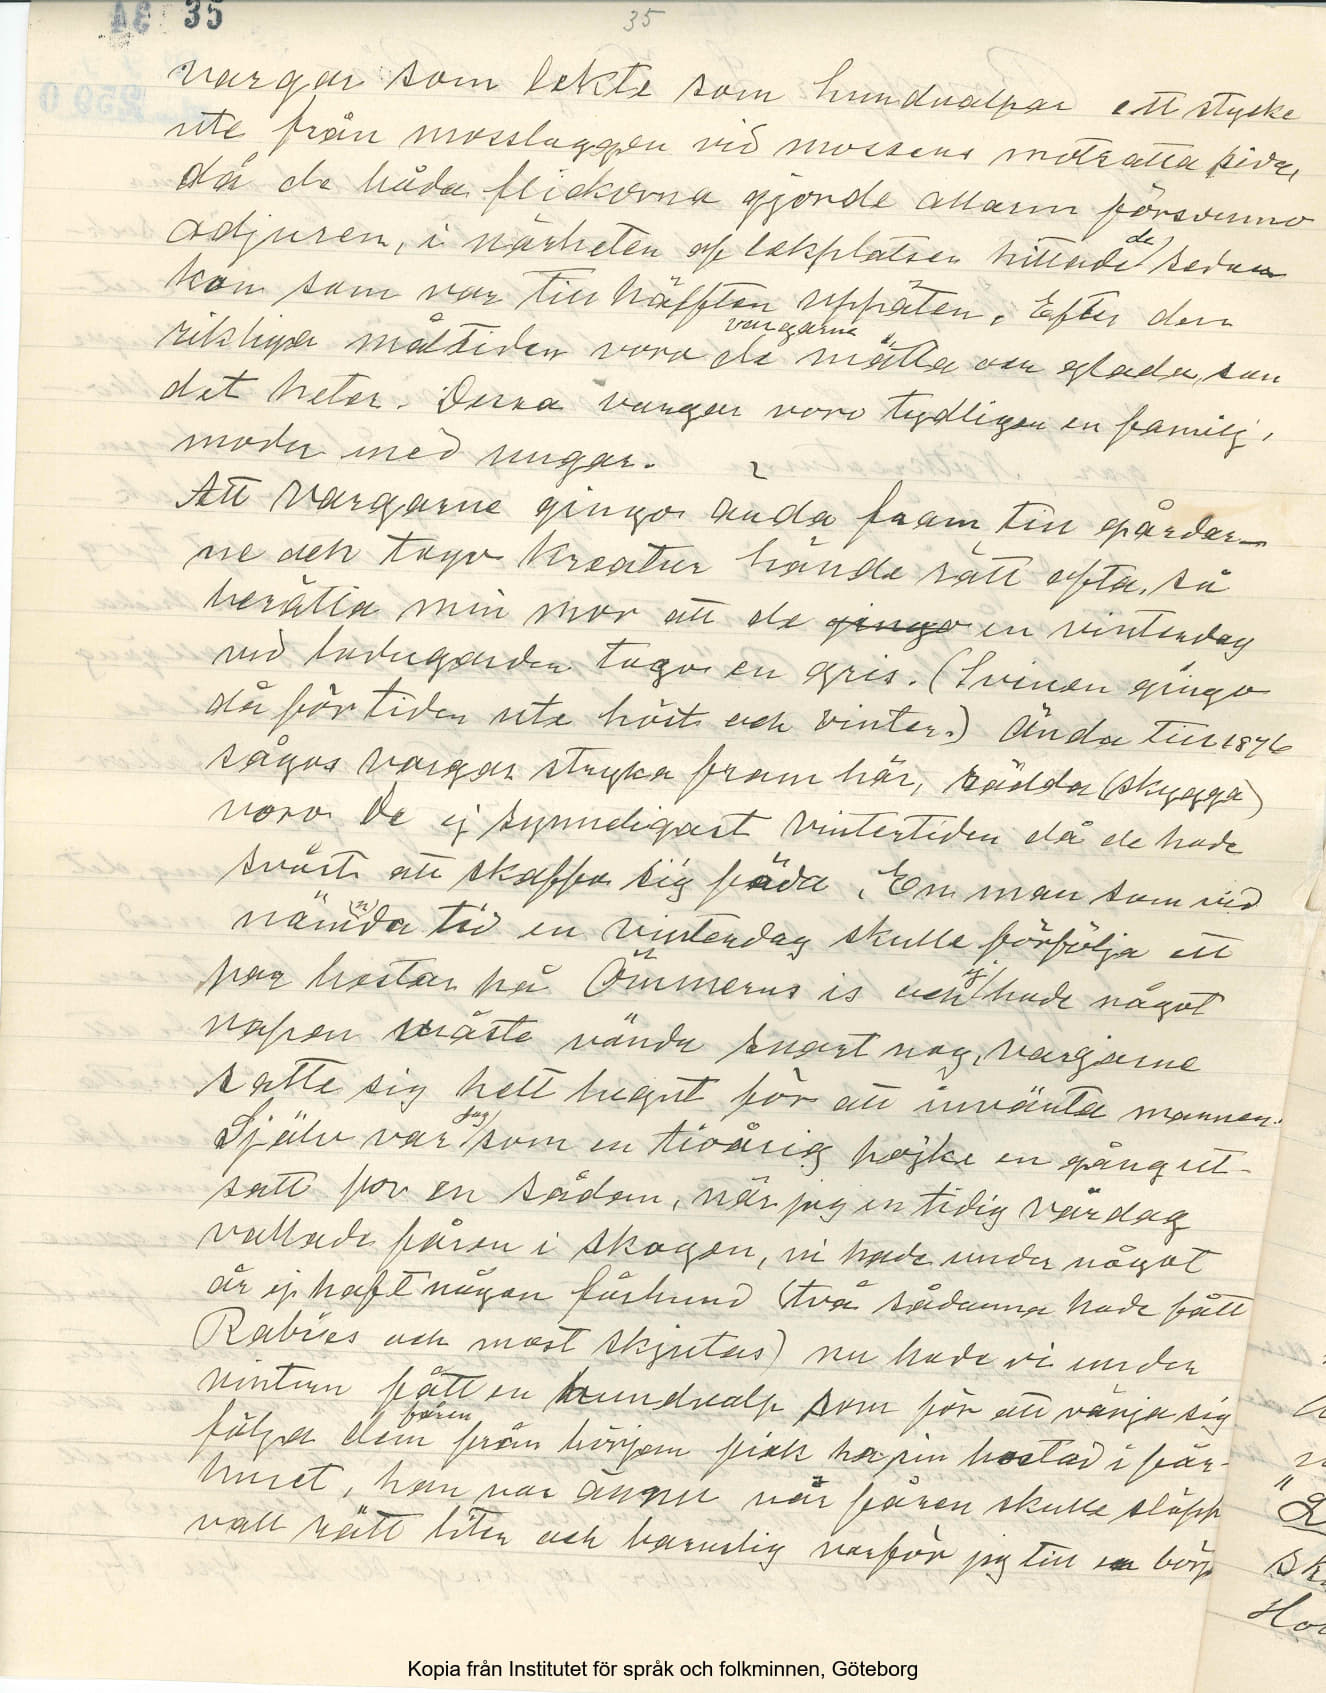 35
35
vargar som lekte som hundvalpar ett stycke
ute från mosslaggen vid mossens motsatta sida,
då de båda flickorna gjorde allarm försvunno
odjuren, i närheten af lekplatsen hittade de sedan
kon som var till hälften uppäten. Efter den
rikliga måltiden voro de vargarne mätta och glada, som
det heter. Dessa vargar voro tydligen en familj,
moder med ungar.
Att vargarne gingo ända fram till gårdar-
ne och togo kreatur hände rätt ofta, så
berätta min mor att de gingo en vinterdag
vid ladugården togo en gris. (Svinen gingo
då för tiden ute höst och vinter.) Ända till 1876
sågos vargar stryka fram här, rädda (skygga)
voro De ej synnerligast vintertiden då de hade
svårt att skaffa sig föda. En man som vid
nämda (n) tid en vinterdag skulle förfölja ett
par bestar på Ömmerns is och ej hade något
vapen måste vända snart nog, vargarne
satte sig helt lugnt för att invänta mannen.
Själv var jag som en tioårig pojke en gång ut-
satt för en sådan, när jag en tidig vårdag
vallade fåren i skogen, vi hade under något
år ej haft någon fårhund (två sådanna hade fått
Rabies och måst skjutas) nu hade vi under
vintern fått en hundvalp som för att vänja sig
följa dem fåren från början fick ha sin bostad i får-
huset, han var ännu när fåren skulle släpp
vall rätt liten och barnslig varför jag till en börj
Kopia från Institutet för språk och folkminnen, Göteborg